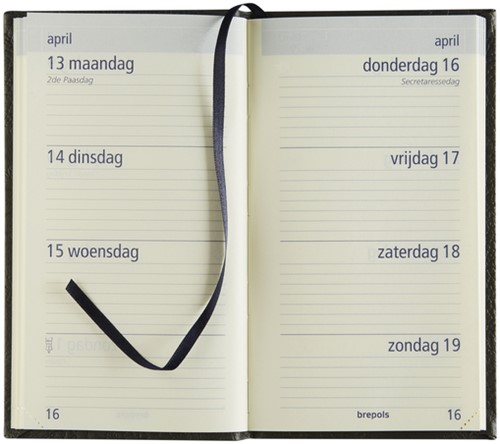 april
13 maandag
2de Paasdag
14 dinsdag
15 woensdag
16
april
donderdag 16
Secretaressedag
vrijdag 17
zaterdag 18
zondag 19
brepols
16